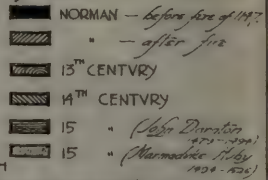 NORMAN — before fire of 1147.
" — after fire
13TH CENTVRY
14TH CENTVRY
15 " (John Darnton
1479 - 1494)
15 " (Marmaduke Huby
1494 - 1526)